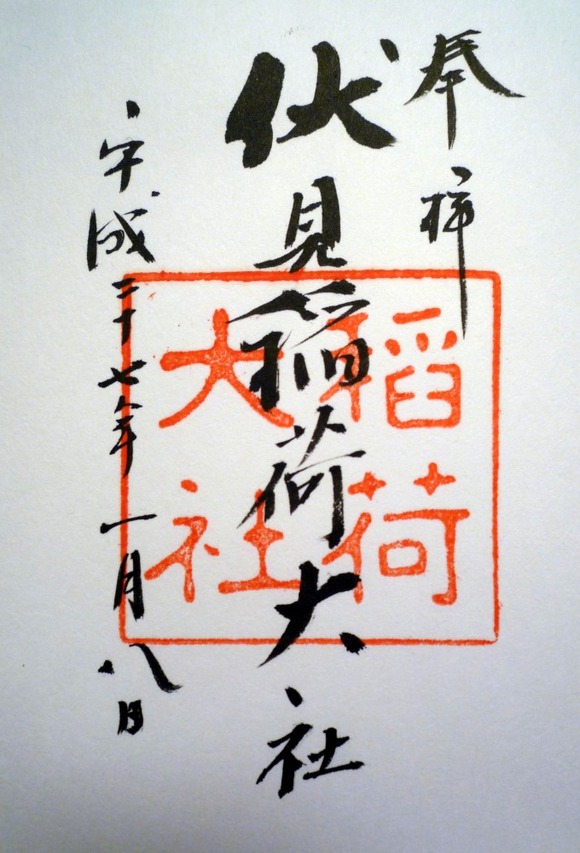 奉拝
伏見稲荷大社
平成二十七年一月八日
稲荷
大社